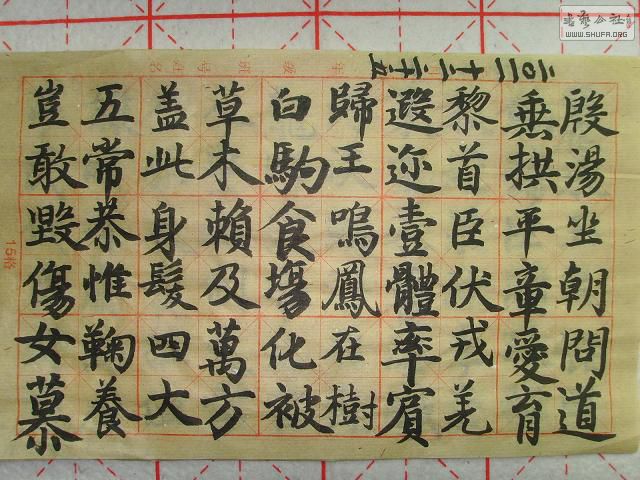 书艺公社
WWW.SHUFA.ORG
二〇一一十二二十五
殷湯坐朝問道
垂拱平章愛育
黎首臣伏戎羌
遐迩壹體率賓
歸王鳴鳳在樹
白駒食場化被
草木賴及萬方
盖此身髮四大
五常恭惟鞠養
豈敢毀傷女慕
15格